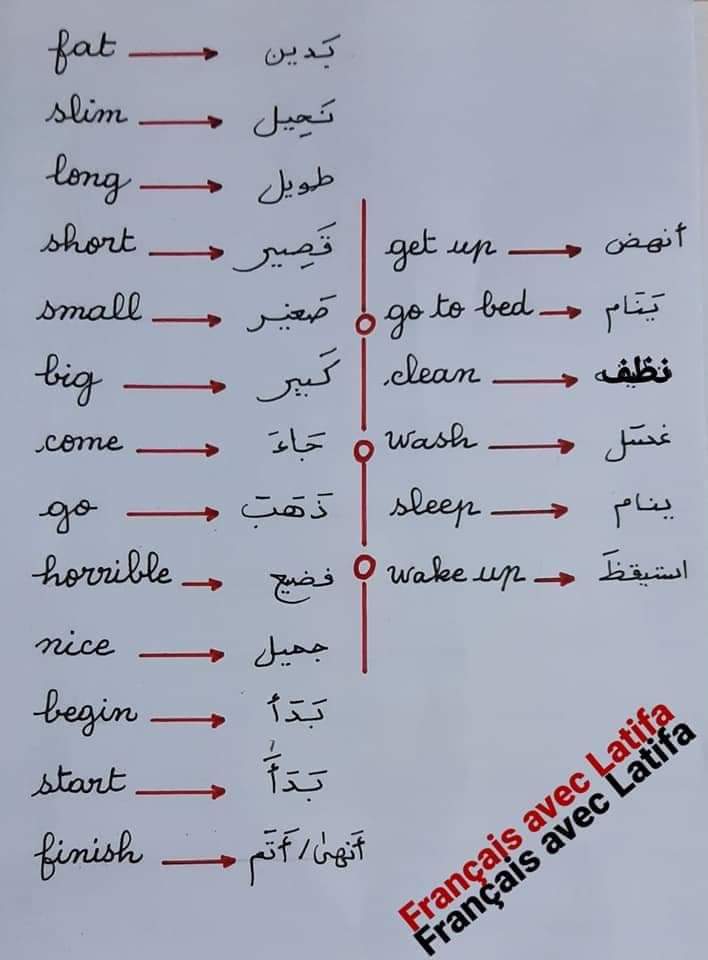 fat → بَدين
slim → نَحِيل
long → طويل
short → قَصِير
small → صَغير
big → كَبير
come → جَاءَ
go → ذَهَبَ
horrible → فضيع
nice → جميل
begin → بَدَأ
start → بَدَأَ
finish → أَنهىٰ / أَتَم
get up → أنهض
go to bed → يَنَام
clean → نظّف
wash → غسَل
sleep → ينام
wake up → استيقظَ
Français avec Latifa
Français avec Latifa